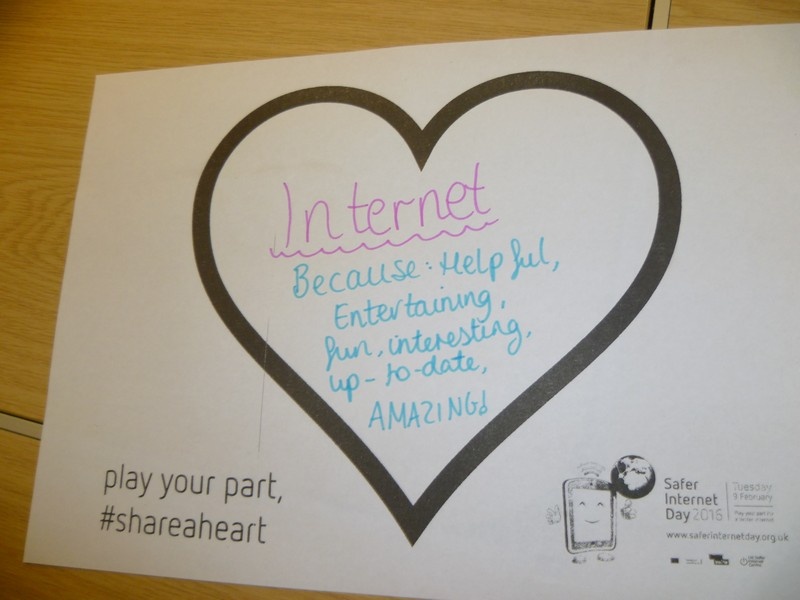 Internet
Because: Helpful,
Entertaining,
fun, interesting,
up-to-date,
AMAZING!
play your part,
#shareaheart
Safer
Internet
Day 2016
Tuesday
9 February
Play your part for
a better internet
www.saferinternetday.org.uk